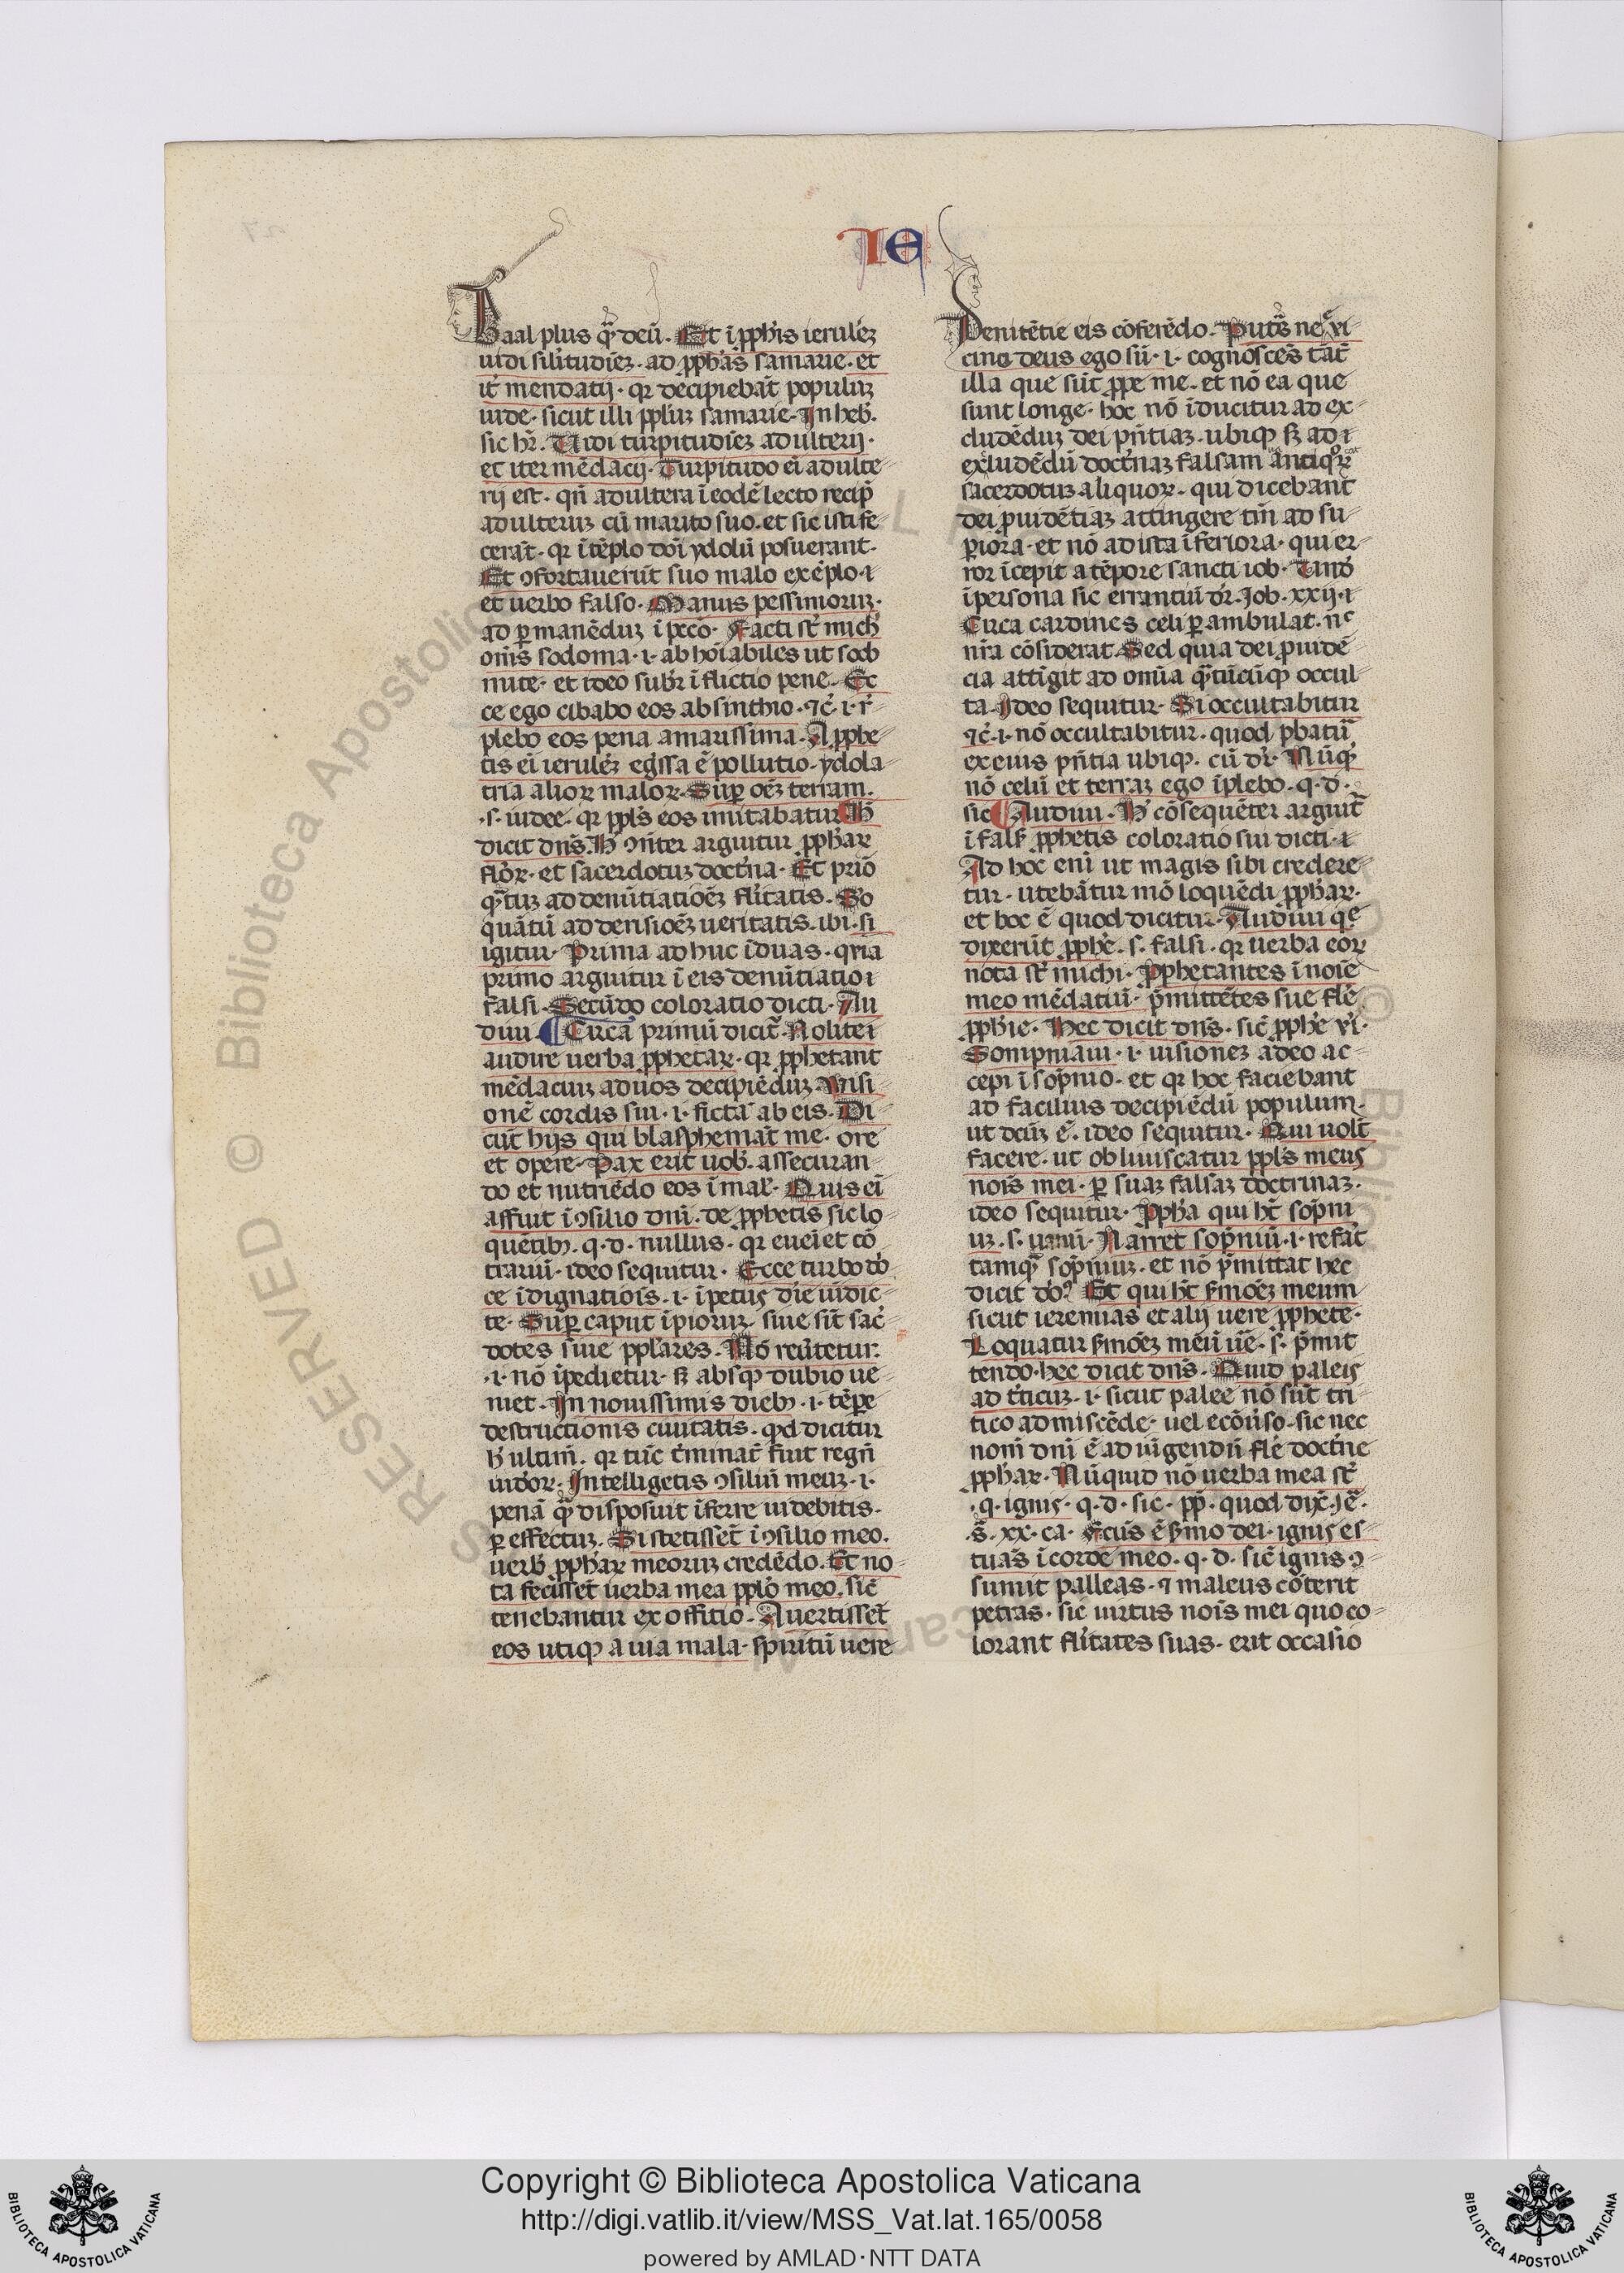 IE
Baal plus qᷓ deū. Et ī ꝓph̄is ierulēꝫ
uidi silitudīeꝫ. ad ꝓph̄as samarie. et
it̄ mendatij. qr decipiebāt populuꝫ
iude. sicut illi pplūꝫ samarie. In heb̄.
sic hr̄. Uidi turpitudīeꝫ adulterij.
et iter mēdacij. Turpitudo ei adulte
rij est. qn̄ adultera ī eodē lecto recip̄
adulteruꝫ cū marito suo. et sic isti fe
cerāt. qr ī tēplo dn̄i ydolū posuerant.
Et ꝯfortauerūt suo malo exēplo ⁊
et uerbo falso. Manus pessimoruꝫ.
ad ꝑmanēduꝫ ī pcc̄o. Facti st̄ mich̄
om̄s sodoma. i. abhoīabiles ut sodo
mite. et ideo subr̄ īflictio pene. Ec
ce ego cibabo eos absinthio. ⁊c̄. i. r̄
plebo eos pena amarissima. A ꝓphe
tis ei ierulēꝫ egissa ē pollutio. ydola
tria alioꝝ maloꝝ. Suꝑ oēꝫ terram.
.s. iudee. qr ppl̄s eos imitabatur. H̄
dicit dn̄s. H̄ ꝯn̄ter arguitur ꝓph̄aꝝ
fl̄oꝝ. et sacerdotuꝫ doct̄na. Et prīo
qᷓtuꝫ ad denūtiatiōeꝫ fl̄itatis. So
quātū ad derisiōeꝫ ueritatis. ibi. si
igitur. Prima adhuc ī duas. qria
primo arguitur ī eis denūtiatio ⁊
falsi. Secūdo coloratio dicti. Au
diui. Circa primū dicit̄. Nolite ⁊
audire uerba ꝓphetaꝝ. qr ꝓphetant
mēdaciuꝫ ad uos decipiēduꝫ. Uisi
onē cordis sui. i. fictā ab eis. Di
cūt hijs qui blasphemāt me. ore
et opere. Pax erit uob̄. assecuran
do et nutriēdo eos ī mal̄. Quis ei
affuit ī ꝯsilio dn̄i. de ꝓphetis sic lo
quētibꝫ. q. d. nullus. qr eueīet cō
trariū. ideo sequitur. Ecce turbo do
ce īdignatiōis. i. īpetus die uīdic
te. Suꝑ caput īpioruꝫ. siue sīt sac̄
dotes siue ppl̄ares. Nō reūtetur.
.i. nō īpedietur. sꝫ absqꝫ dubio ue
niet. In nouissimis diebꝫ. i. tēꝑe
destructionis ciuitatis. qd dicitur
h̄ ultim̄. qr tūc t̄minat̄ fuit regn̄
iudeoꝝ. Intelligetis ꝯsiliū meuꝫ. i.
penā qᷓ disposui īferre iudebitis.
ꝑ effectuꝫ. Si stetissēt ī ꝯsilio meo.
uerb̄ ꝓph̄aꝝ meoruꝫ credēdo. Et no
ta fecissēt uerba mea pplō meo. sic̄
tenebantur ex offitio. Auertissēt
eos utiqꝫ a uia mala. spiritū uere
Penitētie eis cōferēdo. Putas ne ē ui
cino deus ego sū. i. cognoscēs tāt̄
illa que sūt ꝓpe me. et nō ea que
sunt longe. hoc nō īducitur ad ex
cludēduꝫ dei pn̄tiaꝫ. ubiqꝫ sꝫ ad ⁊
excludēdū doct̄naꝫ falsam antiqoꝝ
sacerdotuꝫ aliquoꝝ. qui dicebant
dei ꝓuidētiaꝫ attingere tm̄ ad su
ꝑiora. et nō ad ista īferiora. qui er
ror īcepit a tēpore sancti iob. Uñ
ī persona sic errantiū dr̄. Iob. xxij. ⁊
Circa cardines celi ꝑambulat. nᶜ
nr̄a cōsiderat. Sed quia dei ꝓuidē
cia attīgit ad om̄ia qᷓtūcūqꝫ occul
ta. Ideo sequitur. Si occultabitur
⁊c̄. i. nō occultabitur. quod ꝓbatur
ex eius pn̄tia ubiqꝫ. cū dr̄. Nūqꝫ
nō celū et terraꝫ ego īplebo. q. d.
sic. Audiui. H̄ cōsequēter arguit̄
ī fals̄ ꝓphetis coloratio sui dicti. ⁊
Ad hoc eni ut magis sibi credere
tur. utebātur mō loquēdi ꝓph̄aꝝ.
et hoc ē quod dicitur. Audiui qē
dixerūt ꝓph̄e. s. falsi. qr uerba eoꝝ
nota st̄ michi. Prophetantes ī noīe
meo mēdatiū. p̄mittētes sue fl̄e
ꝓph̄ie. Hec dicit dn̄s. sic̄ ꝓph̄e ui.
Sompniaui. i. uisioneꝫ a deo ac
cepi ī sop̄nio. et qr hoc faciebant
ad facilius decipiēdū populum.
ut dcūꝫ ē. ideo sequitur. Qui uolt̄
facere. ut obliuiscatur ppl̄s meus
nois mei. ꝑ suaꝫ falsaꝫ doctrinaꝫ.
ideo sequitur. Proph̄a qui ht̄ sop̄ni
uꝫ. s. uanū. Narret sop̄niū. i. refāt
tamqᷓ sop̄niuꝫ. et nō p̄mittat hec
dicit do. Et qui ht̄ s̄moēꝫ meum
sicut ieremias et alij uere ꝓphete.
Loquatur s̄moēꝫ meū ue. s. p̄mit
tendo. hec dicit dn̄s. Quid paleis
ad t̄ticuꝫ. i. sicut palee nō sūt tri
tico admiscēde. uel ecōuso. sic nec
nomī dn̄i ē ad iūgendū fl̄e doct̄ne
ꝓph̄aꝝ. Nūquid nō uerba mea st̄
.q. ignis. q. d. sic. ꝓp̄. quod dix̄. ie.
s̄. xx. ca. Fcūs ē s̄mo dei. ignis es
tuās ī corde meo. q. d. sic̄ ignis ꝯ
sumit palleas. ⁊ maleus cōterit
petras. sic̄ uirtus nois mei quo co
lorant fl̄itates suas. erit occasio
RESERVED © Biblioteca Apostolica
Copyright © Biblioteca Apostolica Vaticana
http://digi.vatlib.it/view/MSS_Vat.lat.165/0058
powered by AMLAD·NTT DATA
BIBLIOTECA APOSTOLICA VATICANA
BIBLIOTECA APOSTOLICA VATICANA